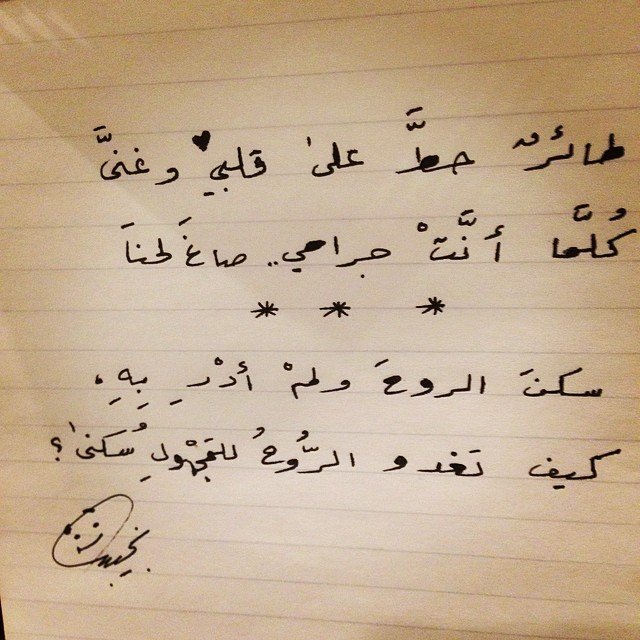 طائرٌ حطَّ على قلبي وغنَّى
كُلَّما أنَّتْ جراحي.. صاغَ لحنَا
* * *
سكنَ الروحَ ولمْ أدْرِ بِهِ،
كيف تغدو الرُّوحُ للمَجْهُولِ سُكنى؟